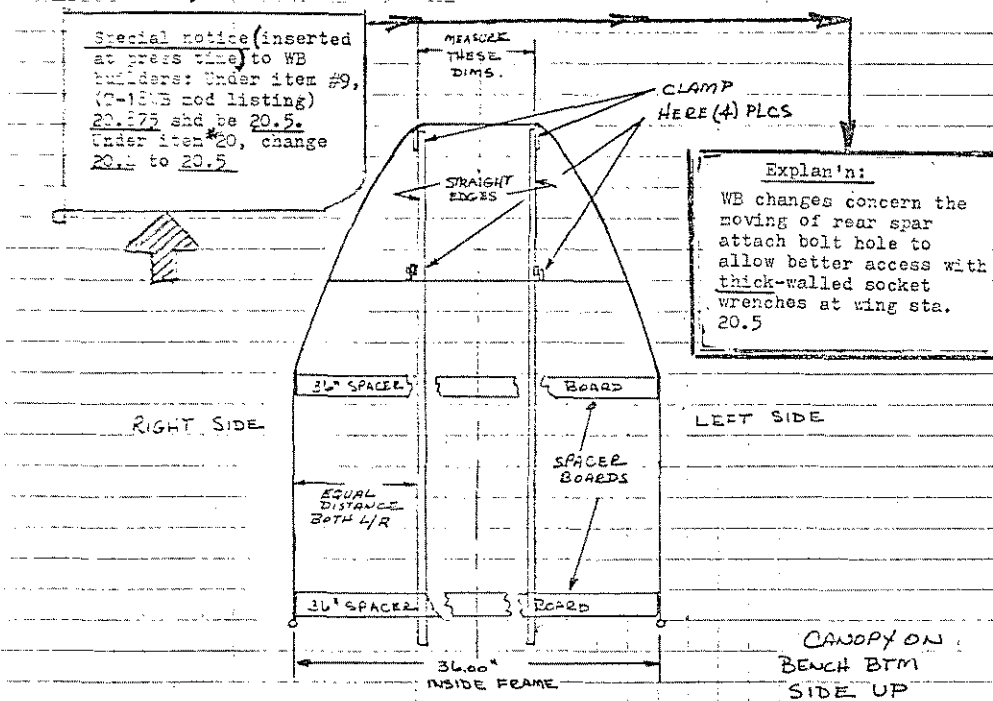 Special notice (inserted
at press time) to WB
builders: Under item #9,
mod listing)
20.875 shd be 20.5.
Under item #20, change
to 20.5
MEASURE
THESE
DIMS.
CLAMP
HERE (4) PLCS
STRAIGHT
EDGES
Explan'n:
WB changes concern the
moving of rear spar
attach bolt hole to
allow better access with
thick-walled socket
wrenches at wing sta.
20.5
36" SPACER
BOARD
RIGHT SIDE
LEFT SIDE
SPACER
BOARDS
EQUAL
DISTANCE
BOTH L/R
36" SPACER
BOARD
36.00"
INSIDE FRAME
CANOPY ON
BENCH BTM
SIDE UP